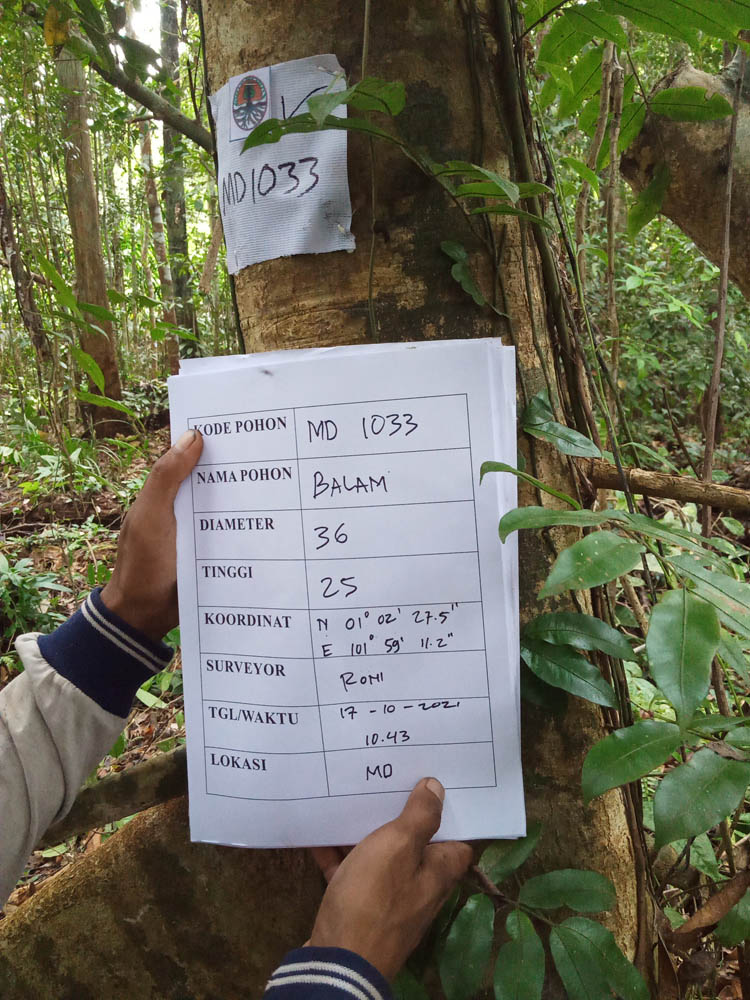 MD1033
KODE POHON MD 1033
NAMA POHON BALAM
DIAMETER 36
TINGGI 25
KOORDINAT N 01° 02' 27.5"
E 101° 59' 11.2"
SURVEYOR RONI
TGL/WAKTU 17 - 10 - 2021
10.43
LOKASI MD